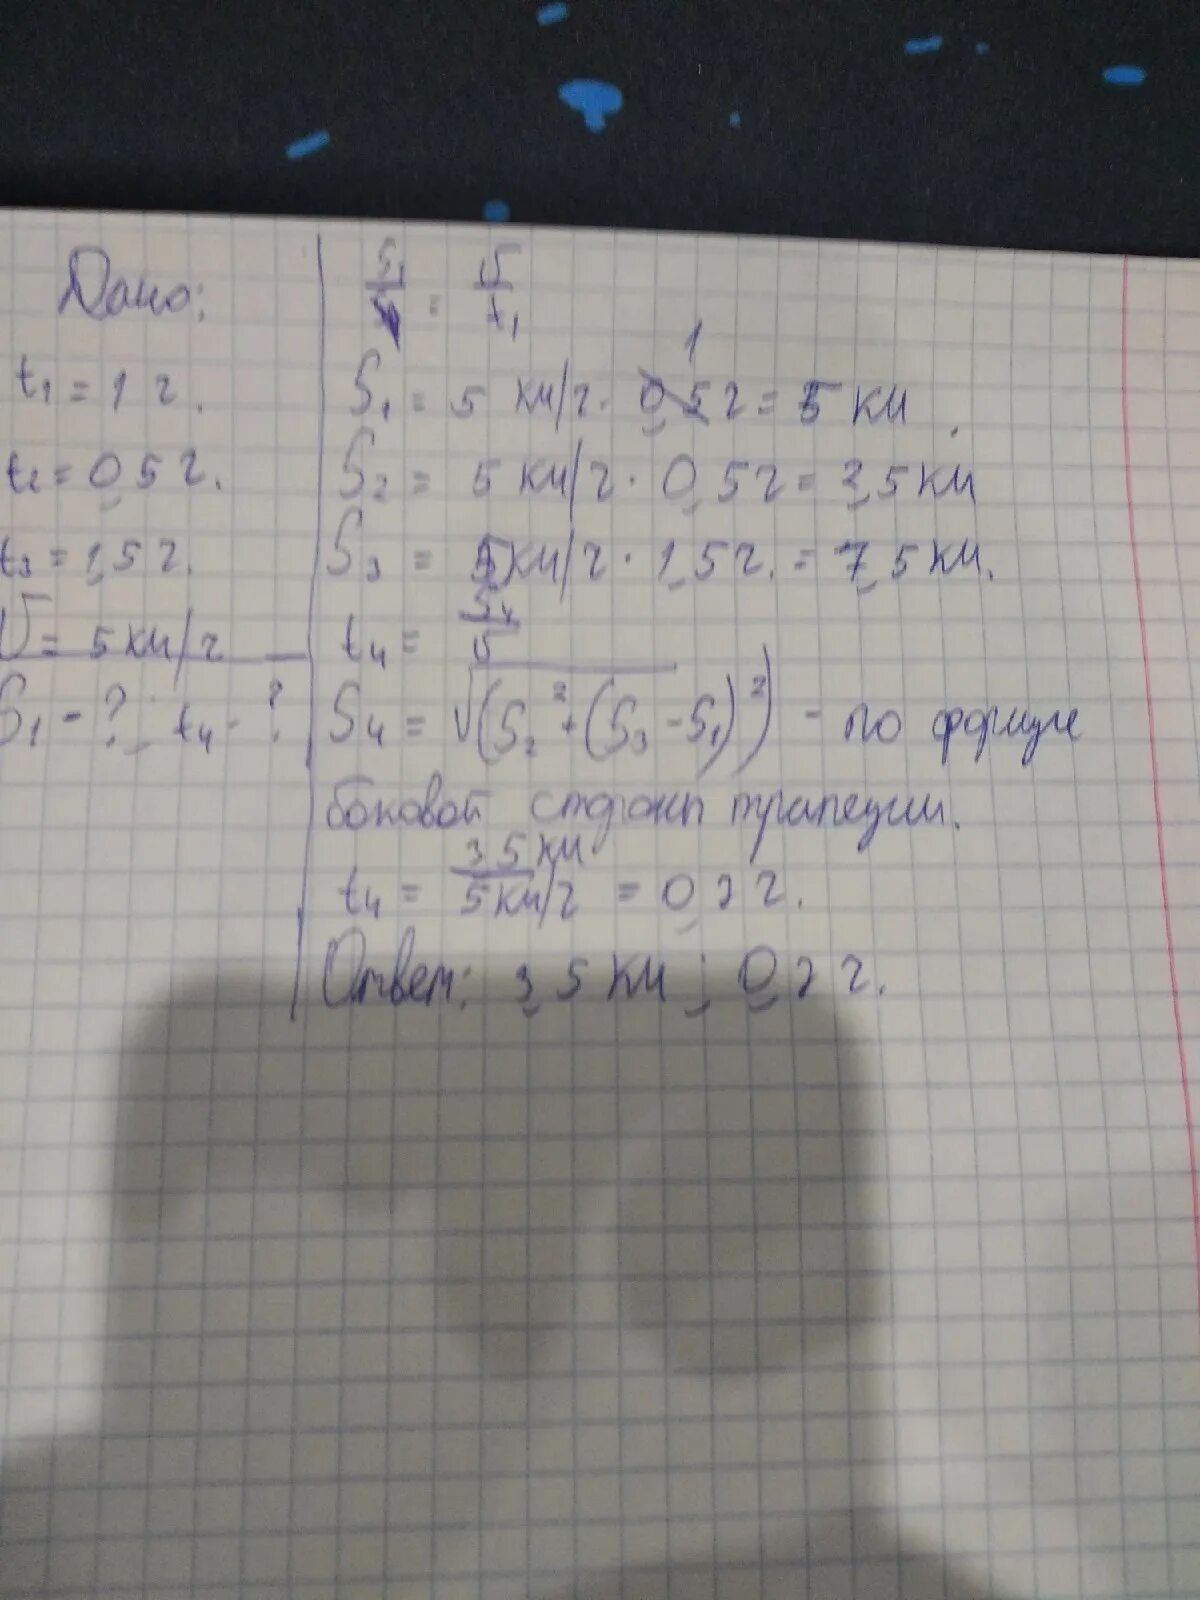 Дано:
t₁ = 1 ч.
t₂ = 0,5 ч.
t₃ = 1,5 ч.
V = 5 км/ч
S₁ - ? ; t₄ - ?
S₁ = 5 км/ч · 1 ч = 5 км.
S₂ = 5 км/ч · 0,5 ч = 3,5 км
S₃ = 5 км/ч · 1,5 ч. = 7,5 км.
t₄ = S₄/V
S₄ = √(S₂² + (S₃ - S₁)²) - по формуле
боковой стороны трапеции.
t₄ = 3,5 км / 5 км/ч = 0,7 ч.
Ответ: 3,5 км ; 0,7 ч.